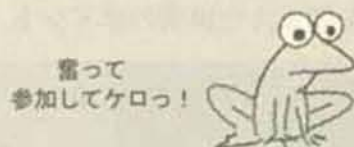 奮って
参加してケロっ!